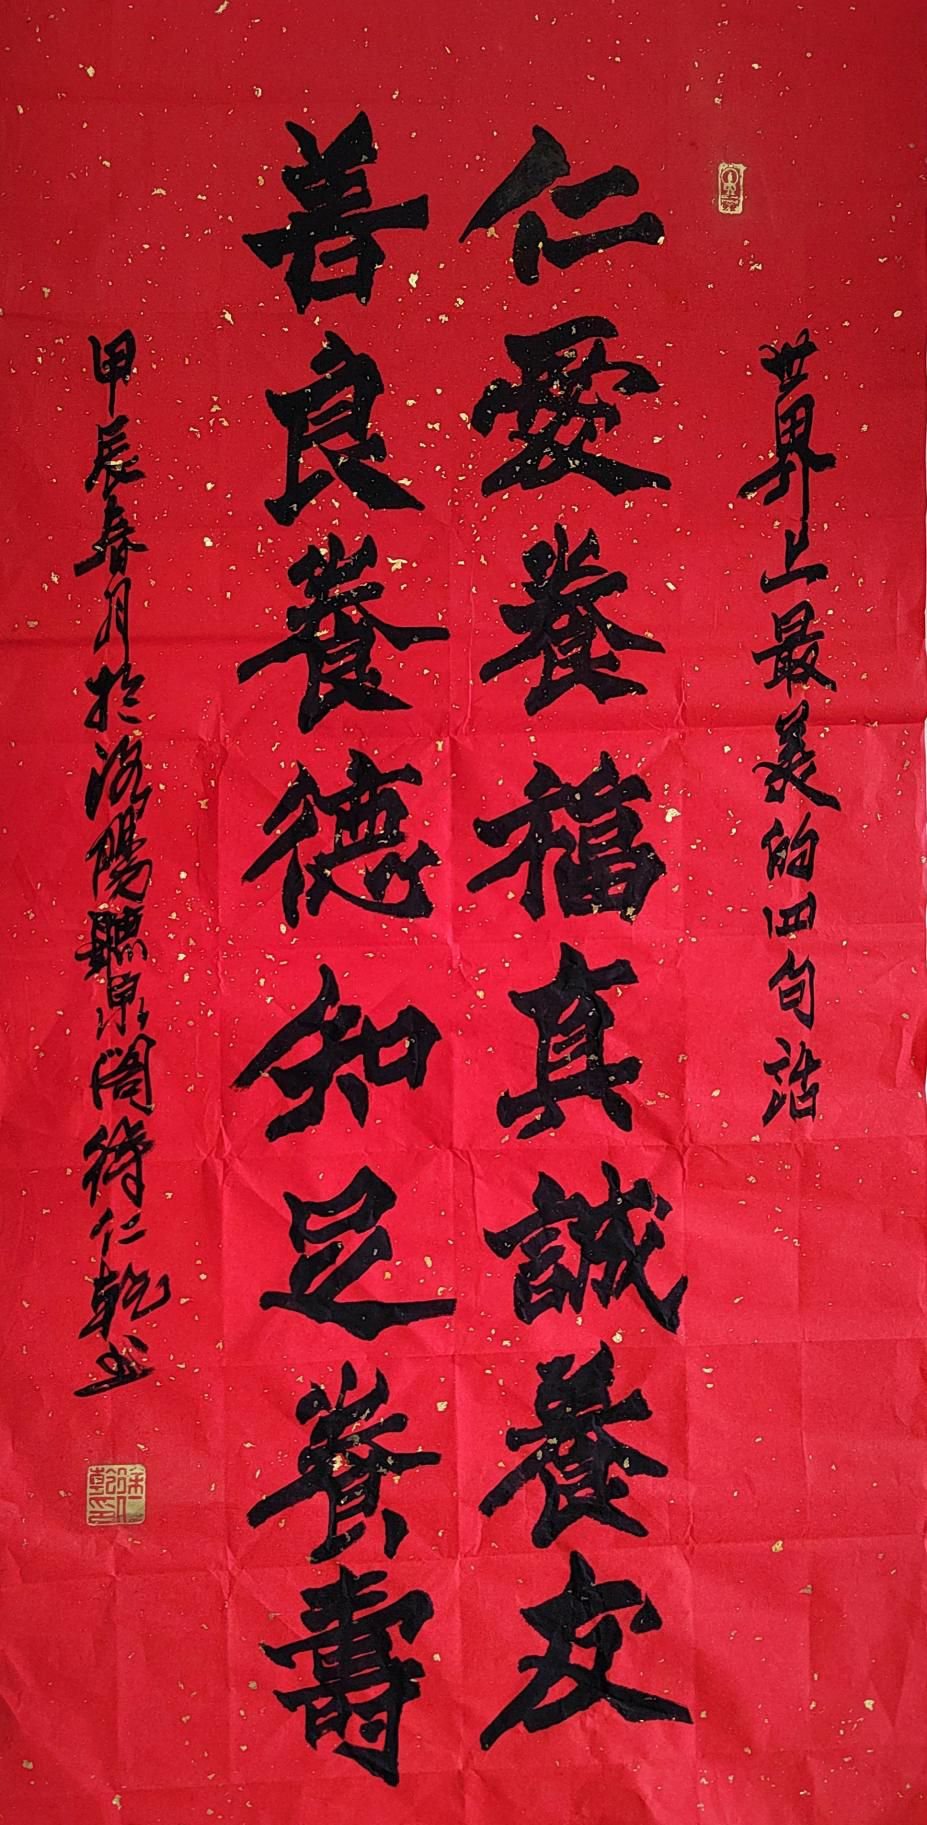 世界上最美的四句話
仁愛養福真誠養友
善良養德知足養壽
甲辰春月於洛陽聽泉閣徐仁乾书